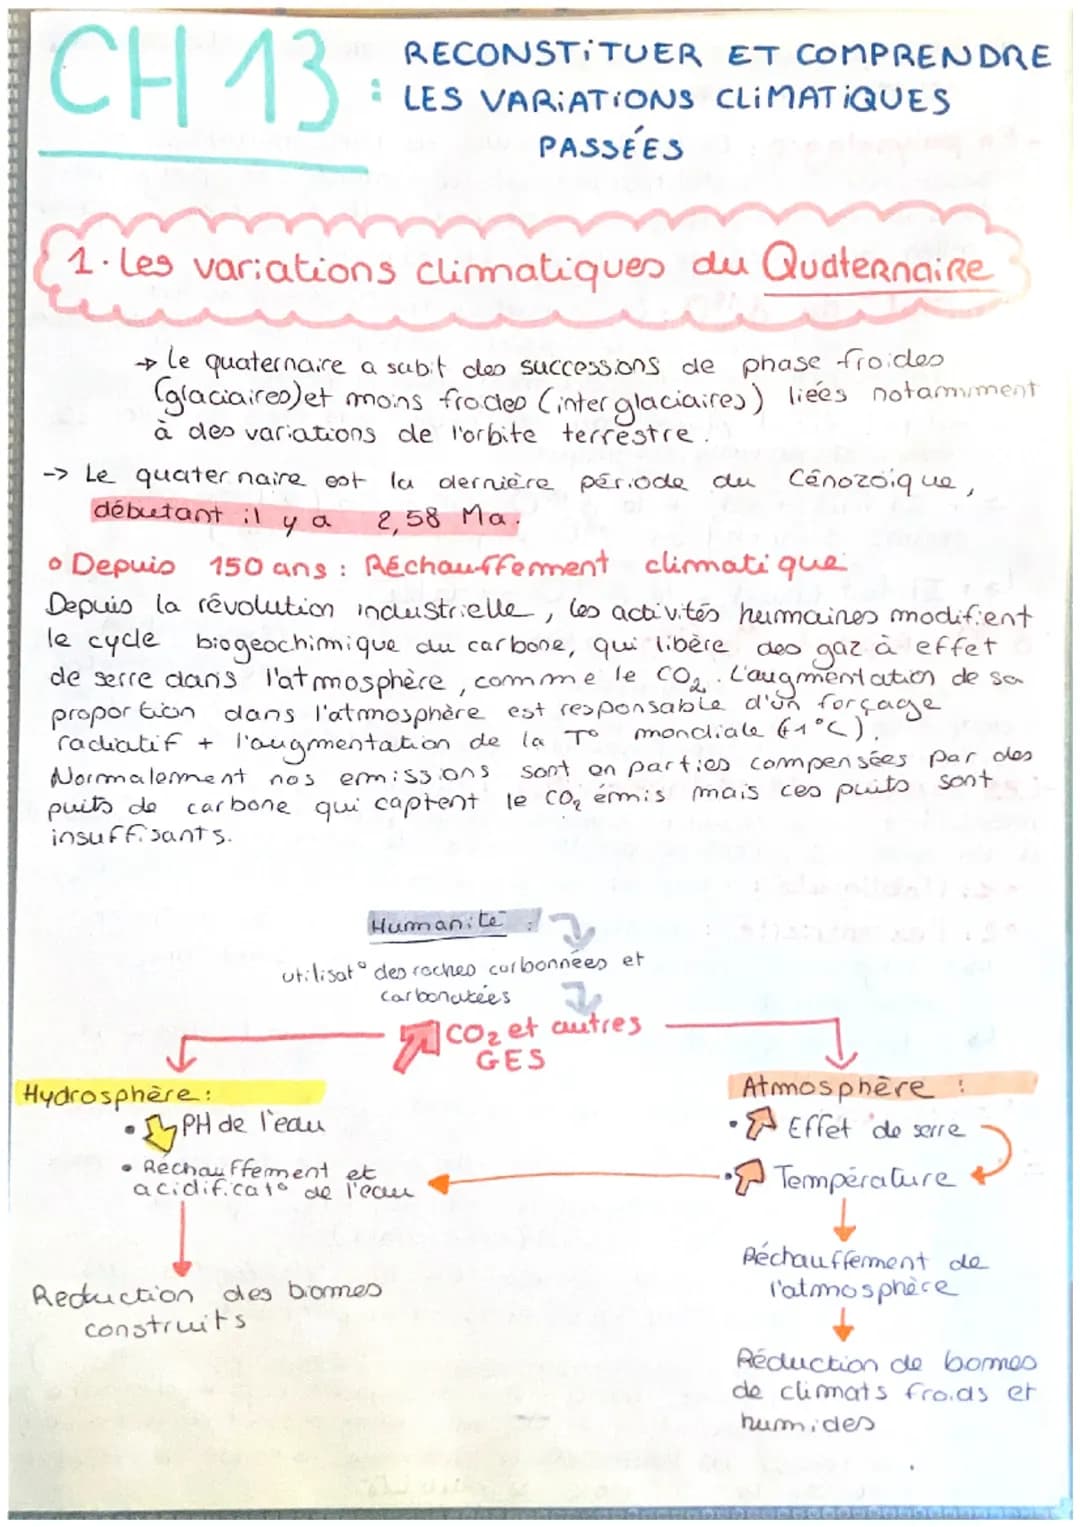 CH 13 : RECONSTITUER ET COMPRENDRE
LES VARIATIONS CLIMATIQUES
PASSÉES
1. Les variations climatiques du Quaternaire
→ Le quaternaire a subit des successions de phase froides
(glaciaires) et moins froides (interglaciaires) liées notamment
à des variations de l'orbite terrestre.
→ Le quaternaire est la dernière période du Cénozoïque,
débutant il y a 2,58 Ma.
Depuis 150 ans : Réchauffement climatique
Depuis la révolution industrielle, les activités humaines modifient
le cycle biogeochimique du carbone, qui libère des gaz à effet
de serre dans l'atmosphère, comme le CO₂. L'augmentation de sa
proportion dans l'atmosphère est responsable d'un forçage
radiatif + l'augmentation de la T° mondiale (+1°C).
Normalement nos emissions sont en parties compensées par des
puits de carbone qui captent le CO₂ émis mais ces puits sont
insuffisants.
Humanité :
utilisat° des roches carbonnées et
carbonatées
CO₂ et autres
GES
Hydrosphère :
• PH de l'eau
• Réchauffement et
acidificat° de l'eau
Reduction des biomes
construits
Atmosphère :
• Effet de serre
• Température
Réchauffement de
l'atmosphère
Réduction de biomes
de climats froids et
humides